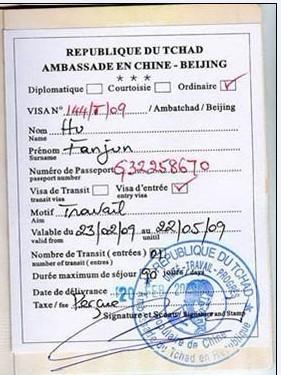 REPUBLIQUE DU TCHAD
AMBASSADE EN CHINE - BEIJING
***
Diplomatique Courtoisie Ordinaire
VISA N° 144/T/09 / Ambatchad / Beijing
Nom Hu
Name
Prénom Fanjun
Surname
Numéro de Passeport G32258670
passport number
Visa de Transit Visa d'entrée
transit visa entry visa
Motif Travail
Aim
Valable du 23/02/09 au 22/05/09
valid from until
Nombre de Transit (entrées) 01
number of transit (entres)
Durée maximum de séjour 90 jours / days
Date de délivrance 20 FEB 20
Taxe / fee Perçue
Signature et Sceau / Signature and Stamp
REPUBLIQUE DU TCHAD
TRAVAIL